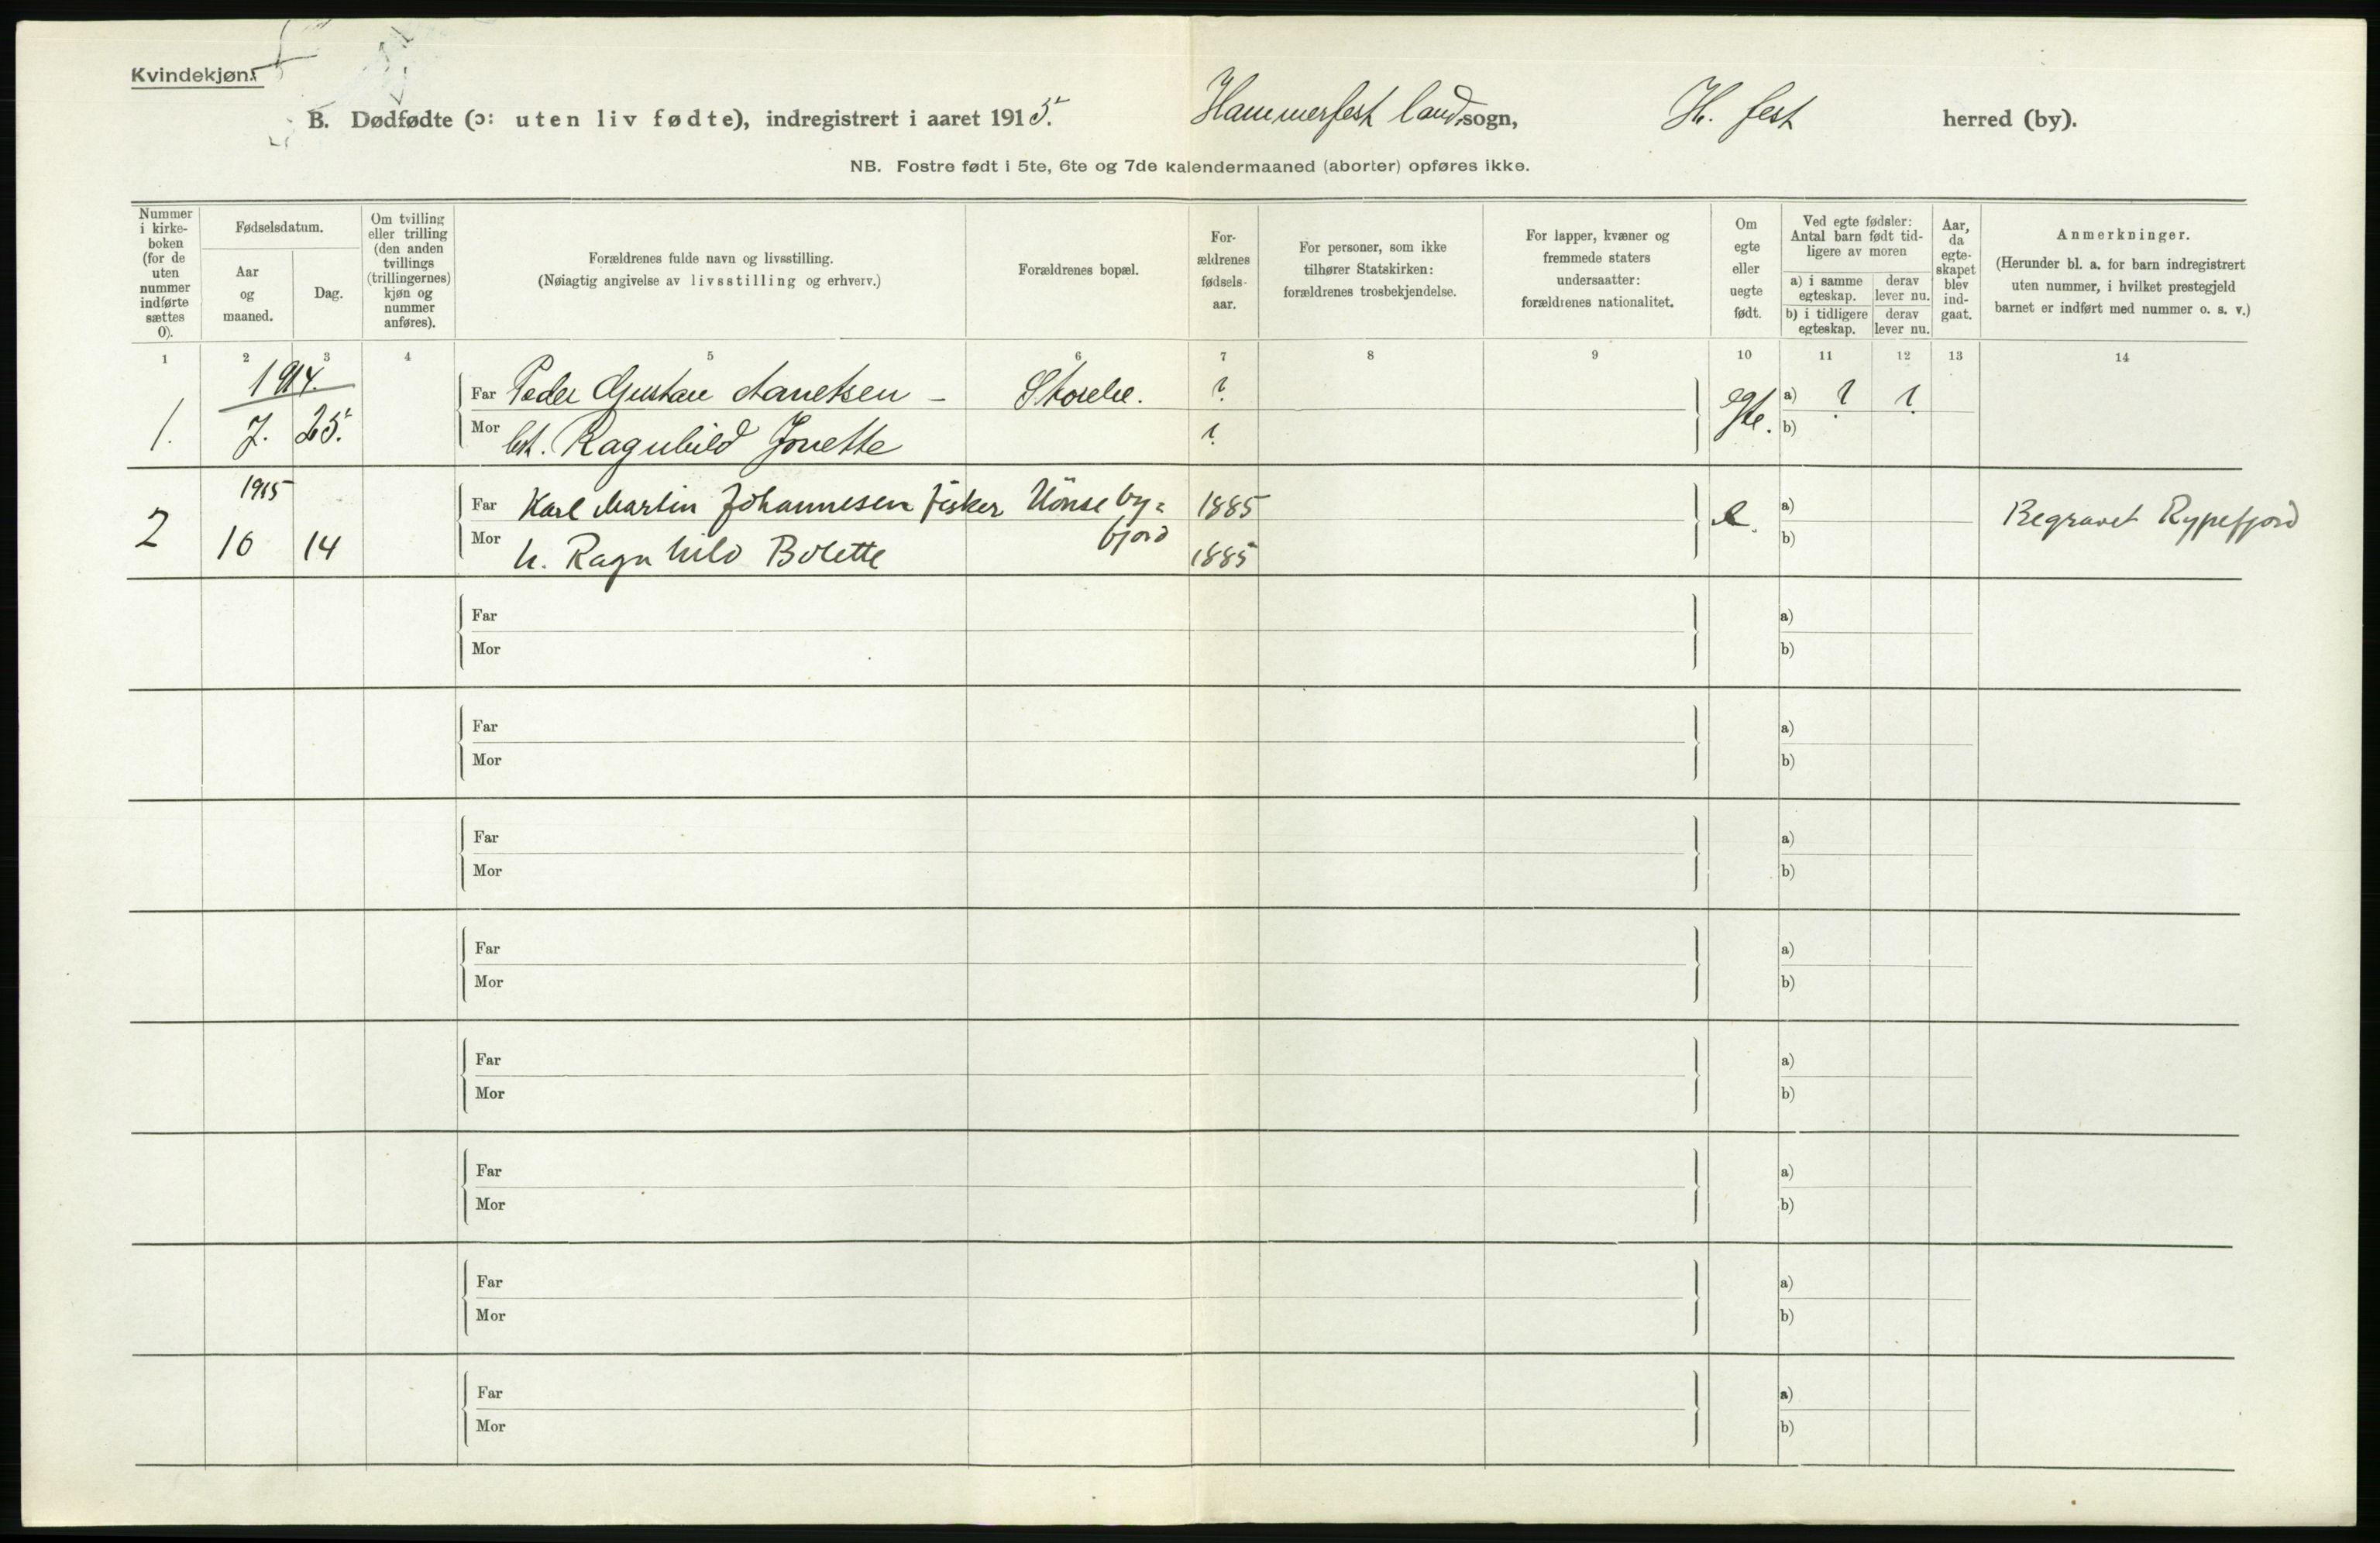 Kvindekjøn.
B. Dødfødte (ɔ: uten liv fødte), indregistrert i aaret 1915. Hammerfest landsogn, H. fest herred (by).
NB. Fostre født i 5te, 6te og 7de kalendermaaned (aborter) opføres ikke.
Nummer i kirke-boken (for de uten nummer indførte sættes 0).
Fødselsdatum.
Aar og maaned.
Dag.
Om tvilling eller trilling (den anden tvillings (trillingernes) kjøn og nummer anføres).
Forældrenes fulde navn og livsstilling.
(Nøiagtig angivelse av livsstilling og erhverv.)
Forældrenes bopæl.
For-ældrenes fødsels-aar.
For personer, som ikke tilhører Statskirken: forældrenes trosbekjendelse.
For lapper, kvæner og fremmede staters undersaatter: forældrenes nationalitet.
Om egte eller uegte født.
Ved egte fødsler: Antal barn født tid-ligere av moren
a) i samme egteskap.
derav lever nu.
b) i tidligere egteskap.
derav lever nu.
Aar, da egte-skapet blev ind-gaat.
Anmerkninger.
(Herunder bl. a. for barn indregistrert uten nummer, i hvilket prestegjeld barnet er indført med nummer o. s. v.)
1 2 3 4 5 6 7 8 9 10 11 12 13 14
1914.
1. 7. 25. Far Peder Gustav - ? egte. a) ? ?
Mor Ragnhild ? b)
1915
2 10 14 Far Karl Martin Johannesen fisker Hönseby= 1885 e. a) Begravet Rypefjord
fjord
Mor h. Ragnhild Bolette 1885 b)
Far a)
Mor b)
Far a)
Mor b)
Far a)
Mor b)
Far a)
Mor b)
Far a)
Mor b)
Far a)
Mor b)
Far a)
Mor b)
Far a)
Mor b)